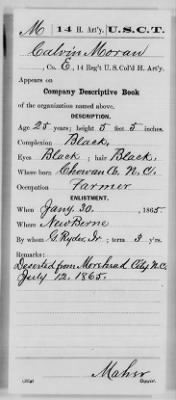 M | 14 H. Art'y. | U.S.C.T.
Calvin Moran
, Co. E, 14 Reg't U.S. Col'd H. Art'y.
Appears on
Company Descriptive Book
of the organization named above.
DESCRIPTION.
Age 25 years; height 5 feet 5 inches.
Complexion Black,
Eyes Black; hair Black,
Where born Chowan Co. N.C.
Occupation Farmer
ENLISTMENT.
When Jany. 30, 1865.
Where New Berne
By whom G. Ryder, Jr; term 3 y'rs.
Remarks:
Deserted from Morehead City N.C.
July 12. 1865.
Maher
Copyist.